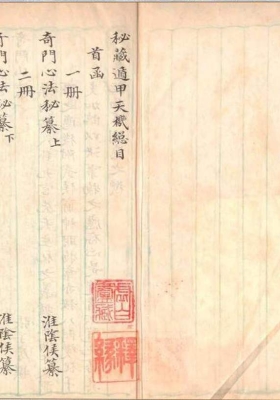 秘藏遁甲天機總目
首函
一册
奇門心法秘纂上 淮陰侯纂
二册
奇門心法秘纂下 淮陰侯纂
長白